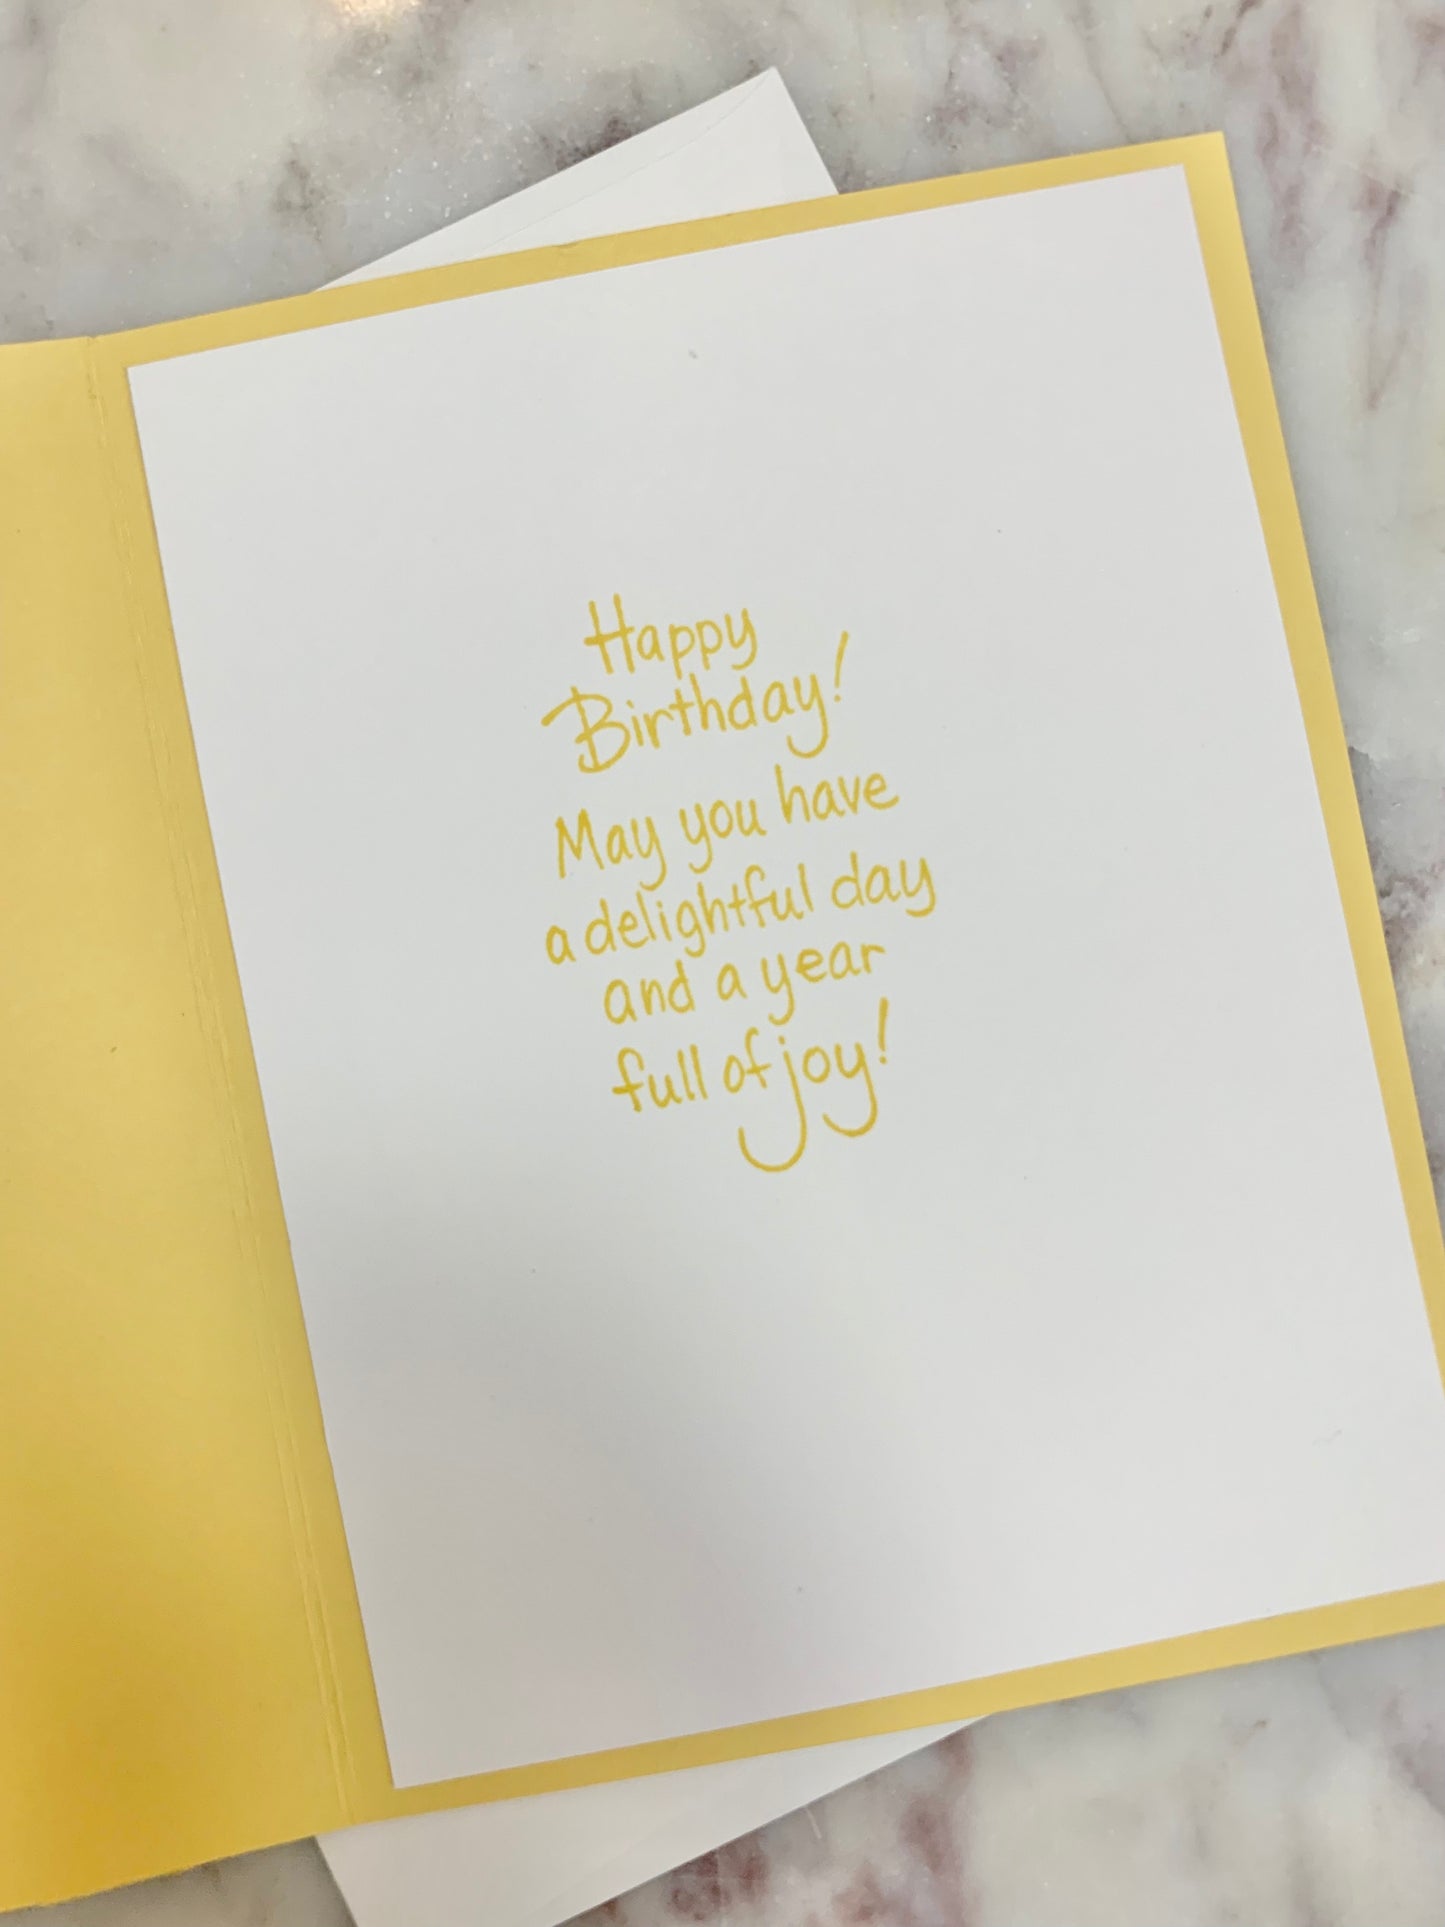 Happy
Birthday!
May you have
a delightful day
and a year
full of joy!